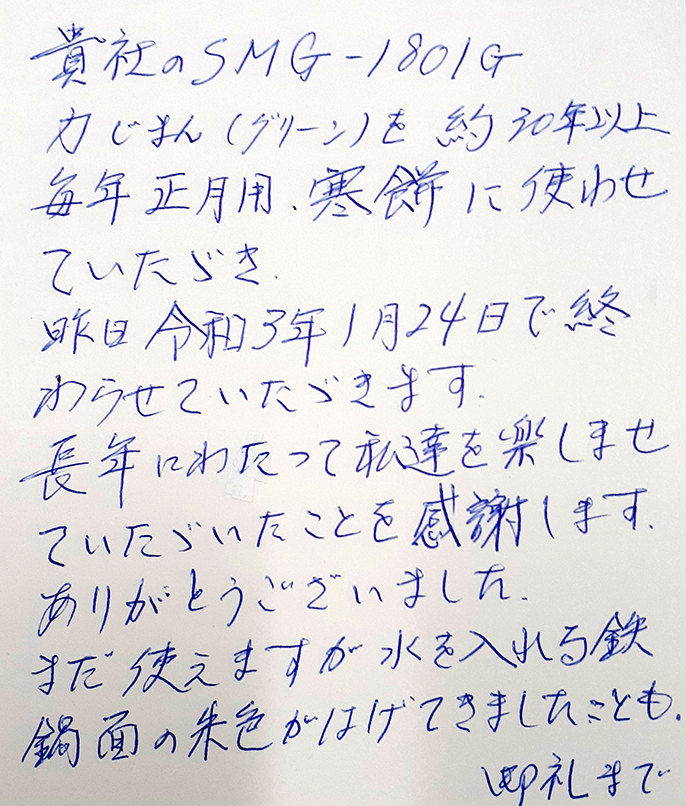 貴社のSMG-1801G
力じまん(グリーン)を約30年以上
毎年正月用、寒餅に使わせ
ていただき、
昨日令和3年1月24日で終
わらせていただきます。
長年にわたって私達を楽しませ
ていただいたことを感謝します。
ありがとうございました。
まだ使えますが水を入れる鉄
鍋面の朱色がはげてきましたことも。
御礼まで